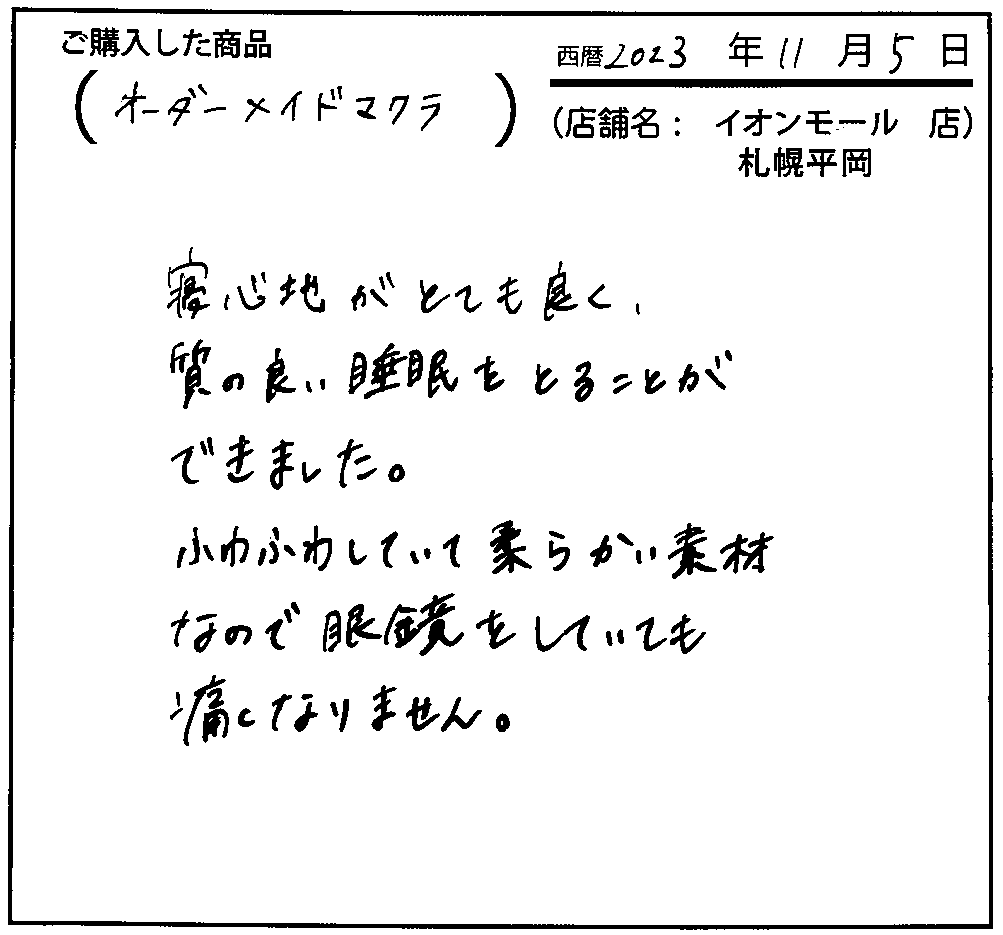 ご購入した商品
(オーダーメイドマクラ)
西暦2023年11月5日
(店舗名: イオンモール 店)
札幌平岡
寝心地がとても良く、
質の良い睡眠をとることが
できました。
ふわふわしていて柔らかい素材
なので眼鏡をしていても
痛くなりません。